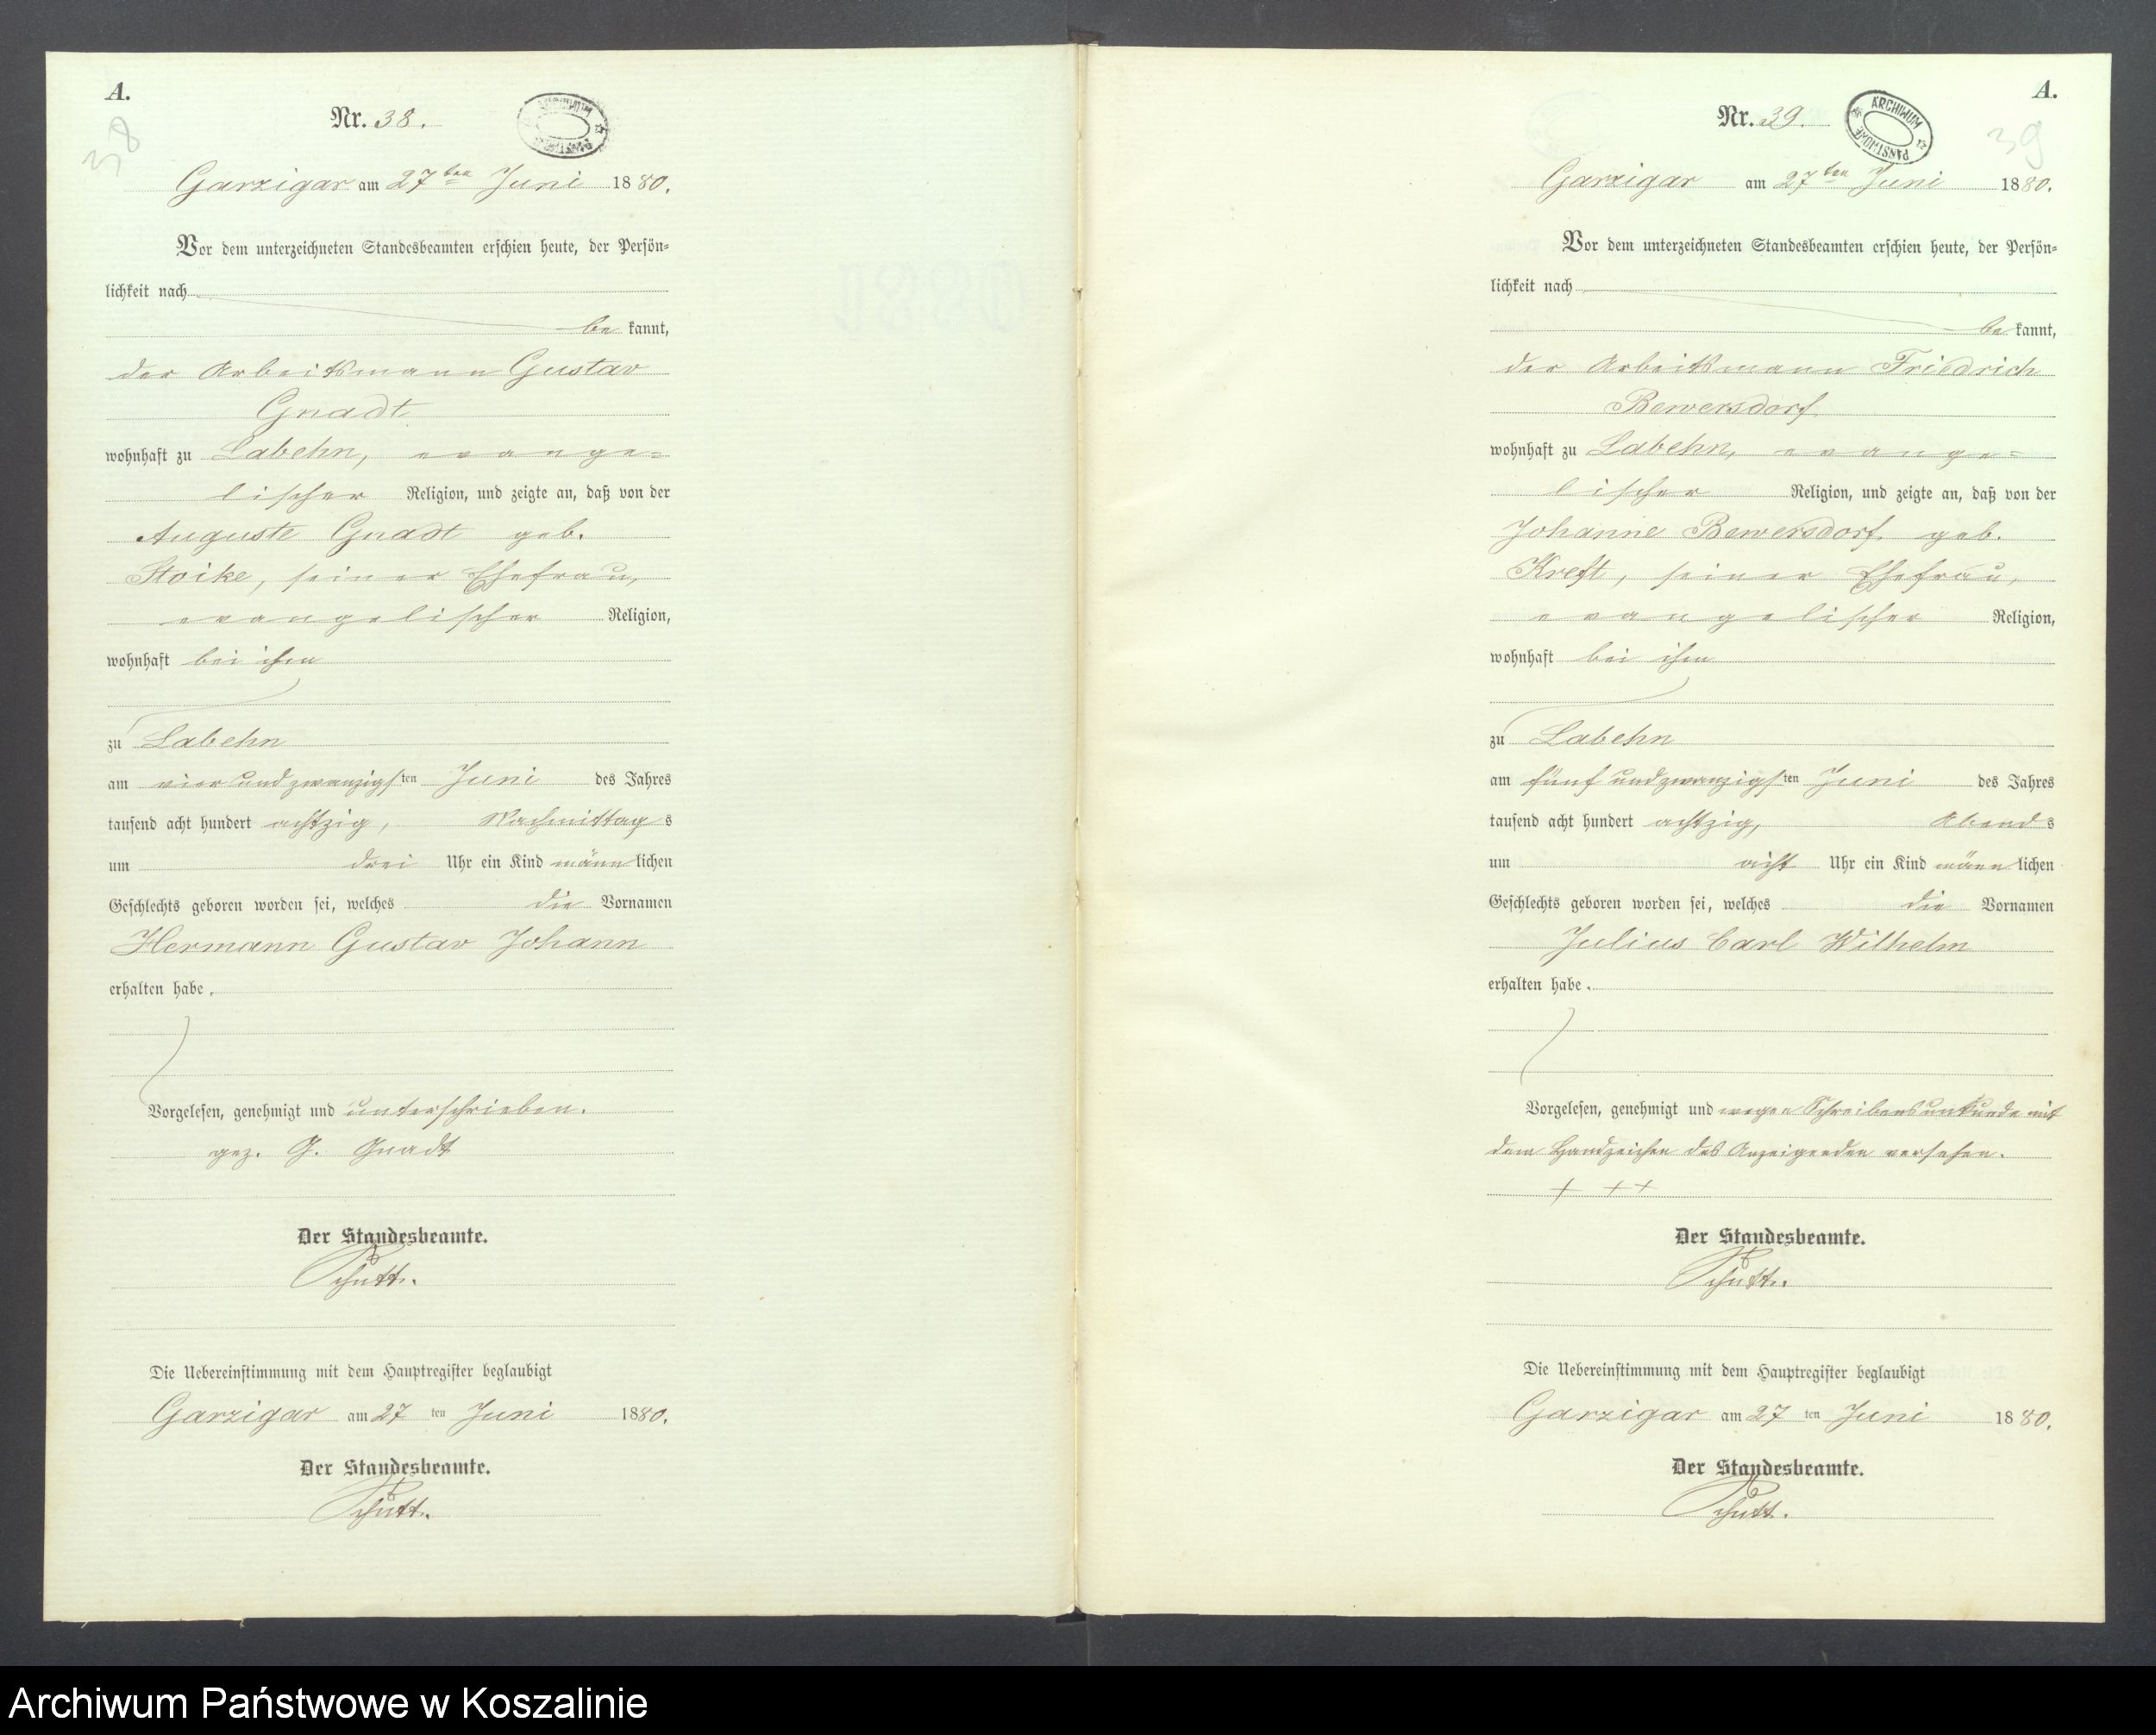 A.
38
Nr. 38.
ARCHIWUM PAŃSTWOWE
Garzigar am 27ten Juni 1880.
Vor dem unterzeichneten Standesbeamten erschien heute, der Persön-
lichkeit nach
be kannt,
der Arbeitsmann Gustav
Gnadt
wohnhaft zu Labehn, evange-
lischer Religion, und zeigte an, daß von der
Auguste Gnadt geb.
Stoike, seiner Ehefrau,
evangelischer Religion,
wohnhaft bei ihm
zu Labehn
am vierundzwanzigsten Juni des Jahres
tausend acht hundert achtzig, Nachmittags
um drei Uhr ein Kind männlichen
Geschlechts geboren worden sei, welches die Vornamen
Hermann Gustav Johann
erhalten habe.
Vorgelesen, genehmigt und unterschrieben.
gez. G. Gnadt
Der Standesbeamte.
Schütt.
Die Uebereinstimmung mit dem Hauptregister beglaubigt
Garzigar am 27 ten Juni 1880.
Der Standesbeamte.
Schütt.
A.
39
Nr. 39.
ARCHIWUM PAŃSTWOWE
Garzigar am 27ten Juni 1880.
Vor dem unterzeichneten Standesbeamten erschien heute, der Persön-
lichkeit nach
be kannt,
der Arbeitsmann Friedrich
Bewersdorf
wohnhaft zu Labehn, evange-
lischer Religion, und zeigte an, daß von der
Johanne Bewersdorf geb.
Kreft, seiner Ehefrau,
evangelischer Religion,
wohnhaft bei ihm
zu Labehn
am fünfundzwanzigsten Juni des Jahres
tausend acht hundert achtzig, Abends
um acht Uhr ein Kind männlichen
Geschlechts geboren worden sei, welches die Vornamen
Julius Carl Wilhelm
erhalten habe.
Vorgelesen, genehmigt und wegen Schreibensunkunde mit
dem Handzeichen des Anzeigenden versehen.
+ + +
Der Standesbeamte.
Schütt.
Die Uebereinstimmung mit dem Hauptregister beglaubigt
Garzigar am 27 ten Juni 1880.
Der Standesbeamte.
Schütt.
Archiwum Państwowe w Koszalinie